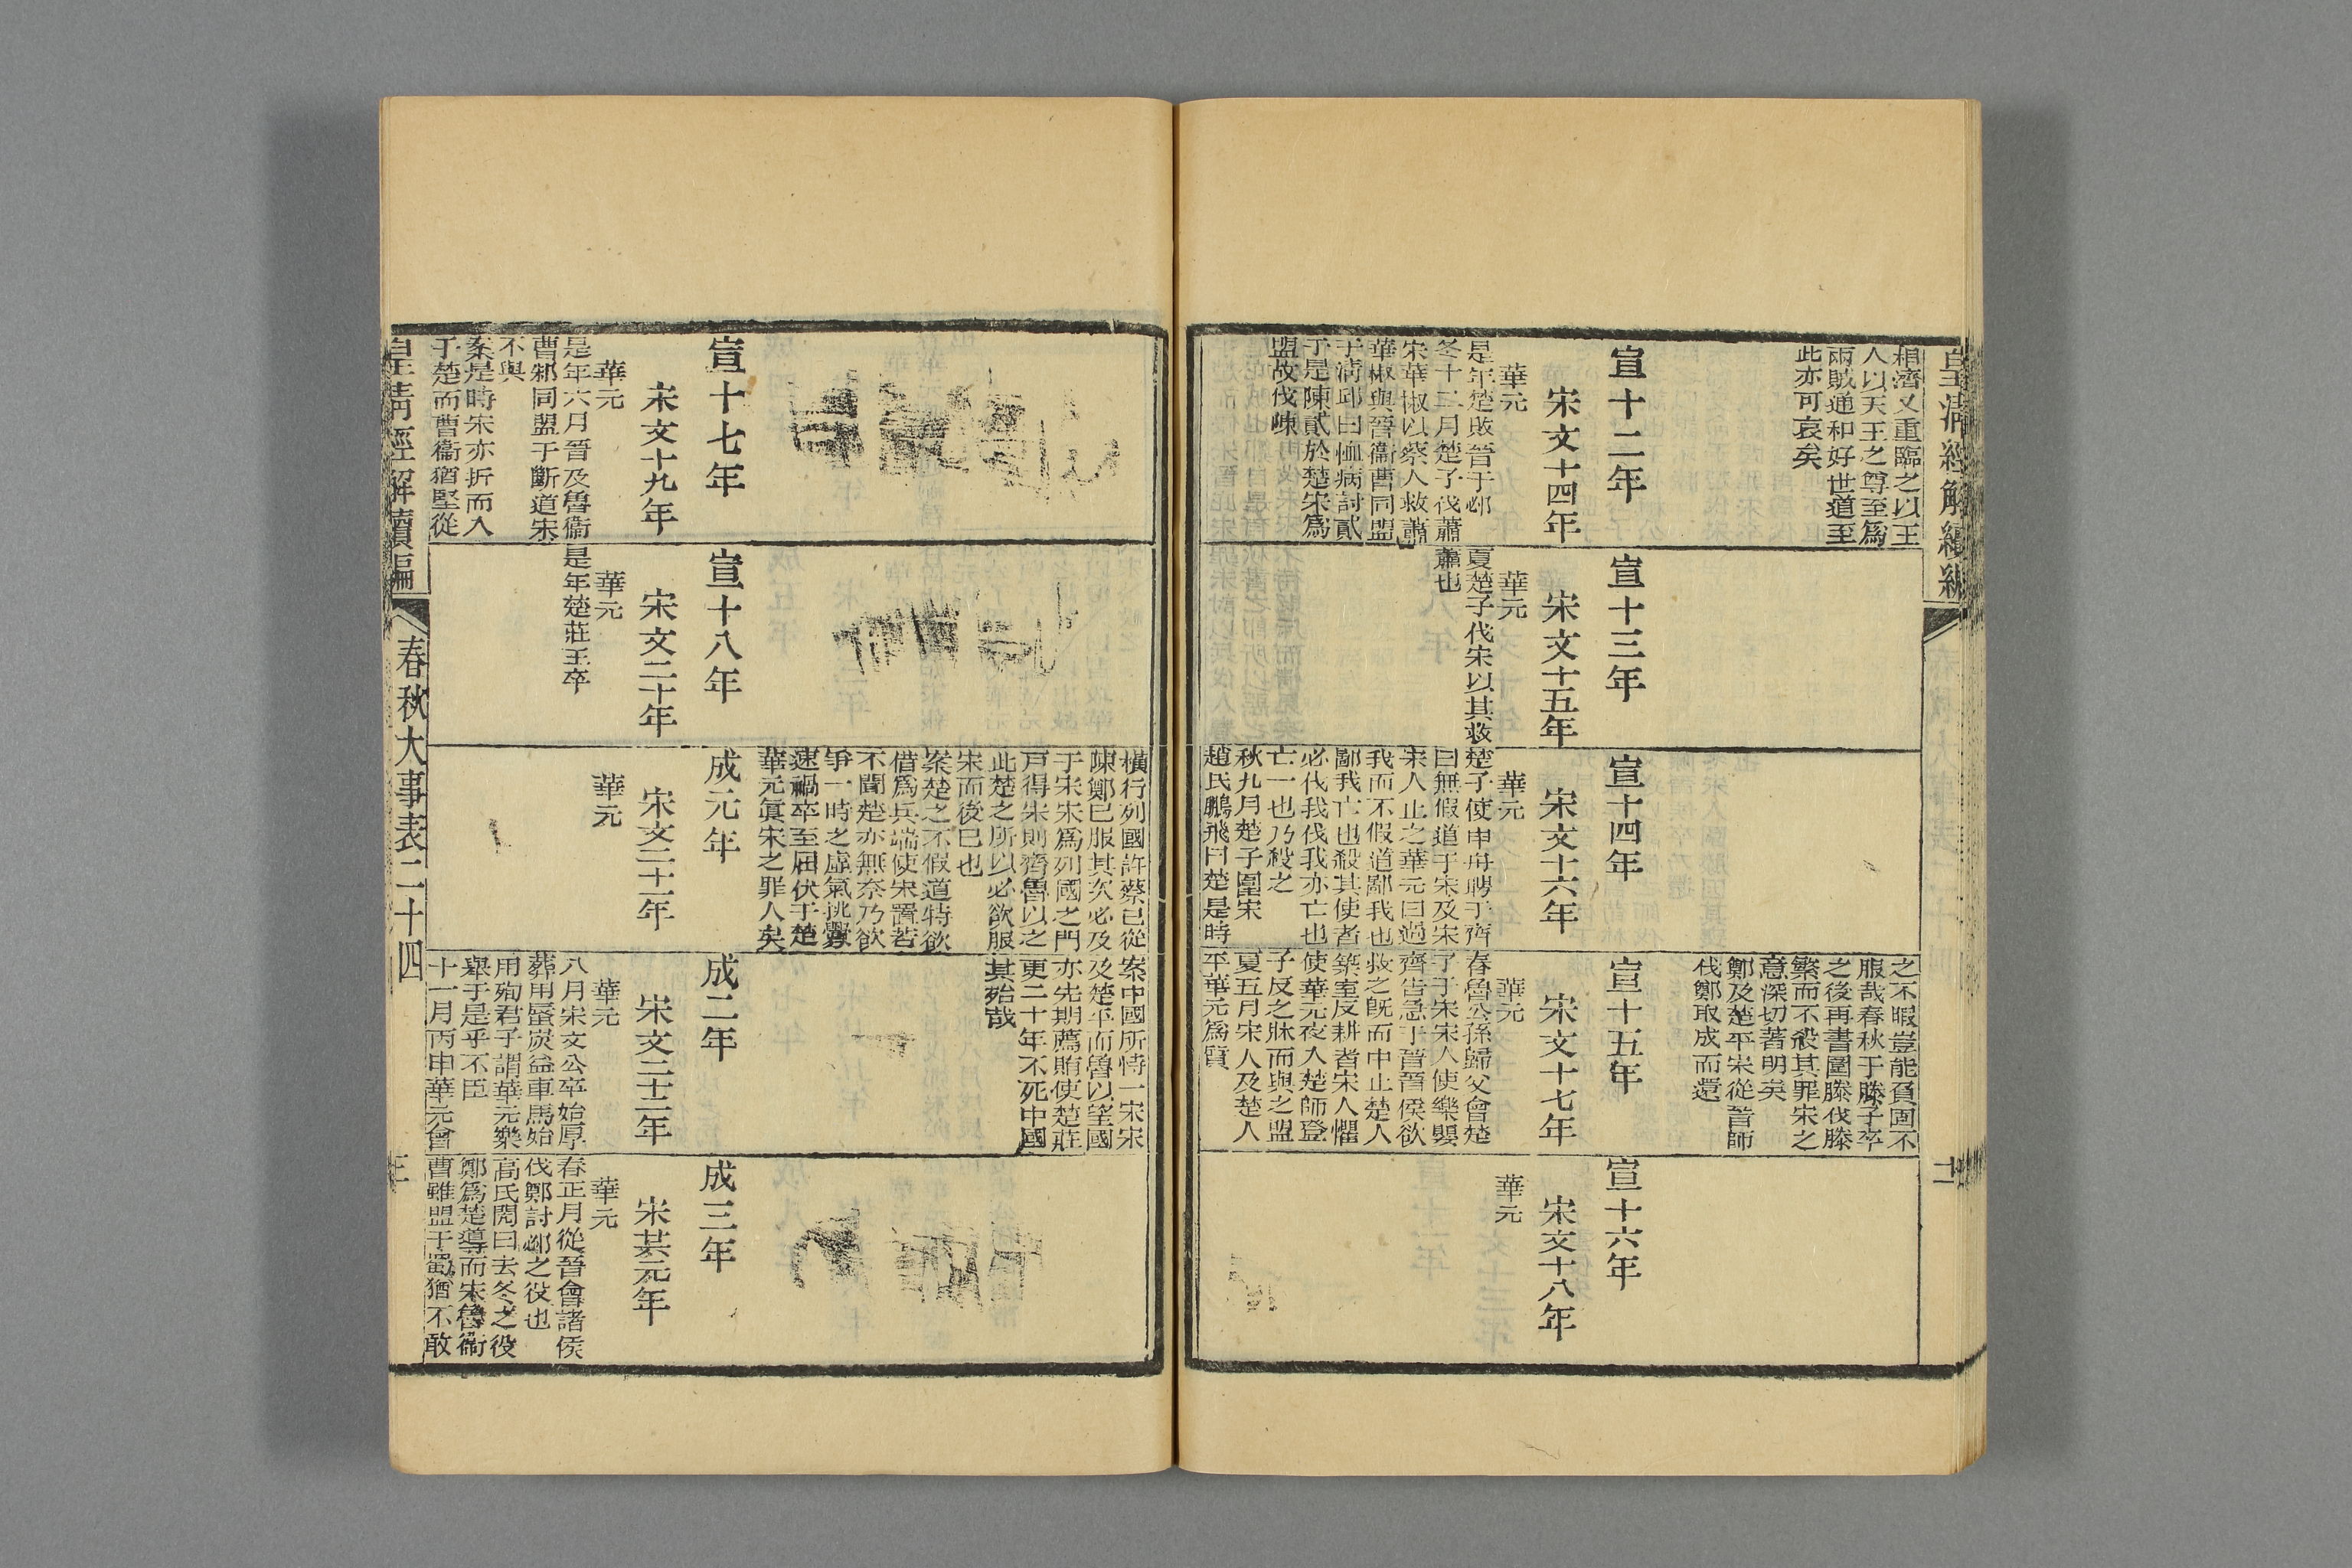 皇清經解續編
相濟又重臨之以王
人以天王之尊至爲
兩賊通和好世道至
此亦可哀矣
宣十二年
宋文十四年
華元
是年楚敗晉于邲
冬十二月楚子伐蕭
宋華椒以蔡人救蕭
華椒與晉衞曹同盟
于淸邱曰恤病討貳
于是陳貳於楚宋爲
盟故伐陳
宣十三年
宋文十五年
華元
夏楚子伐宋以其救
蕭也
宣十四年
宋文十六年
華元
楚子使申舟聘于齊
曰無假道于宋及宋
宋人止之華元曰過
我而不假道鄙我也
鄙我亡也殺其使者
必伐我伐我亦亡也
亡一也乃殺之
秋九月楚子圍宋
趙氏鵬飛曰楚是時
之不暇豈能負固不
服哉春秋于滕子卒
之後再書圍滕伐滕
繁而不殺其罪宋之
意深切著明矣
鄭及楚平宋從晉師
伐鄭取成而還
宣十五年
宋文十七年
華元
春魯公孫歸父會楚
子于宋宋人使樂嬰
齊告急于晉晉侯欲
救之旣而中止楚人
築室反耕者宋人懼
使華元夜入楚師登
子反之牀而與之盟
夏五月宋人及楚人
平華元爲質
宣十六年
宋文十八年
華元
宣十七年
宋文十九年
華元
是年六月晉及魯衞
曹邾同盟于斷道宋
不與
案是時宋亦折而入
于楚而曹衞猶堅從
宣十八年
宋文二十年
華元
是年楚莊王卒
橫行列國許蔡已從
陳鄭已服其次必及
于宋宋爲列國之門
戸得宋則齊魯以之
此楚之所以必欲服
宋而後已也
案楚之不假道特欲
借爲兵端使宋置若
不聞楚亦無奈乃欲
爭一時之虛氣挑釁
速禍卒至屈伏于楚
華元眞宋之罪人矣
成元年
宋文二十一年
華元
案中國所恃一宋宋
及楚平而魯以望國
亦先期薦賄使楚莊
更二十年不死中國
其殆哉
成二年
宋文二十二年
華元
八月宋文公卒始厚
葬用蜃炭益車馬始
用殉君子謂華元樂
舉于是乎不臣
十一月丙申華元會
成三年
宋共元年
華元
春正月從晉會諸侯
伐鄭討邲之役也
高氏閌曰去冬之役
鄭爲楚導而宋魯衞
曹雖盟于蜀猶不敢
皇淸經解續編
春秋大事表二十四